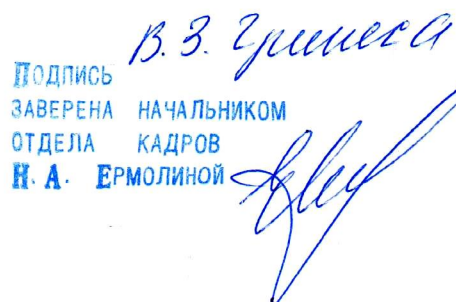 В. З. Гринеса
ПОДПИСЬ
ЗАВЕРЕНА НАЧАЛЬНИКОМ
ОТДЕЛА КАДРОВ
Н. А. ЕРМОЛИНОЙ